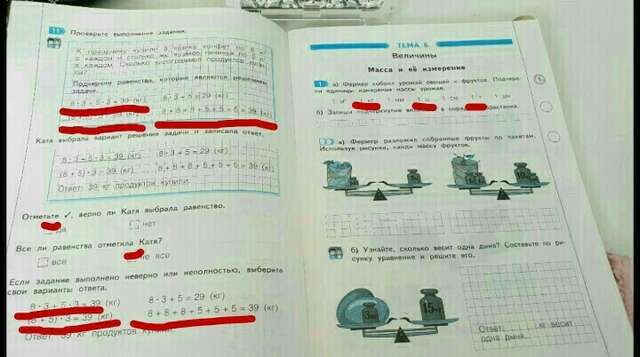 11 Проверьте выполнение задания.
К празднику купили
Сколько килограммов продуктов
Подчеркни равенство, которое является решением
задачи.
8 · 3 + 5 · 3 = 39 (кг)
8 · 3 + 5 = 29 (кг)
8 + 8 + 8 + 5 + 5 + 5 = 39 (кг)
Катя выбрала вариант решения задачи и записала ответ.
8 · 3 + 5 · 3 = 39 (кг) 8 · 3 + 5 = 29 (кг)
(8 + 5) · 3 = 39 (кг) 8 + 8 + 8 + 5 + 5 + 5 = 39 (кг)
Ответ: 39 кг продуктов купили.
Отметьте ✓, верно ли Катя выбрала равенство.
да нет
Все ли равенства отметила Катя?
все не все
Если задание выполнено неверно или неполностью, выберите
свои варианты ответа.
8 · 3 + 5 · 3 = 39 (кг) 8 · 3 + 5 = 29 (кг)
(8 + 5) · 3 = 39 (кг) 8 + 8 + 8 + 5 + 5 + 5 = 39 (кг)
Ответ: 39 кг продуктов купили.
ТЕМА 6.
Величины
Масса и её измерение
1 а) Фермер собрал урожай овощей и фруктов. Подчеркни
единицы измерения массы урожая.
б) Запиши подчёркнутые
в порядке возрастания.
2 а) Фермер разложил собранные фрукты по пакетам.
Используя рисунки, найди массу фруктов.
б) Узнайте, сколько весит одна дыня? Составьте по ри-
сунку уравнение и решите его.
3 кг
15 кг
Ответ: кг весит
одна дыня.